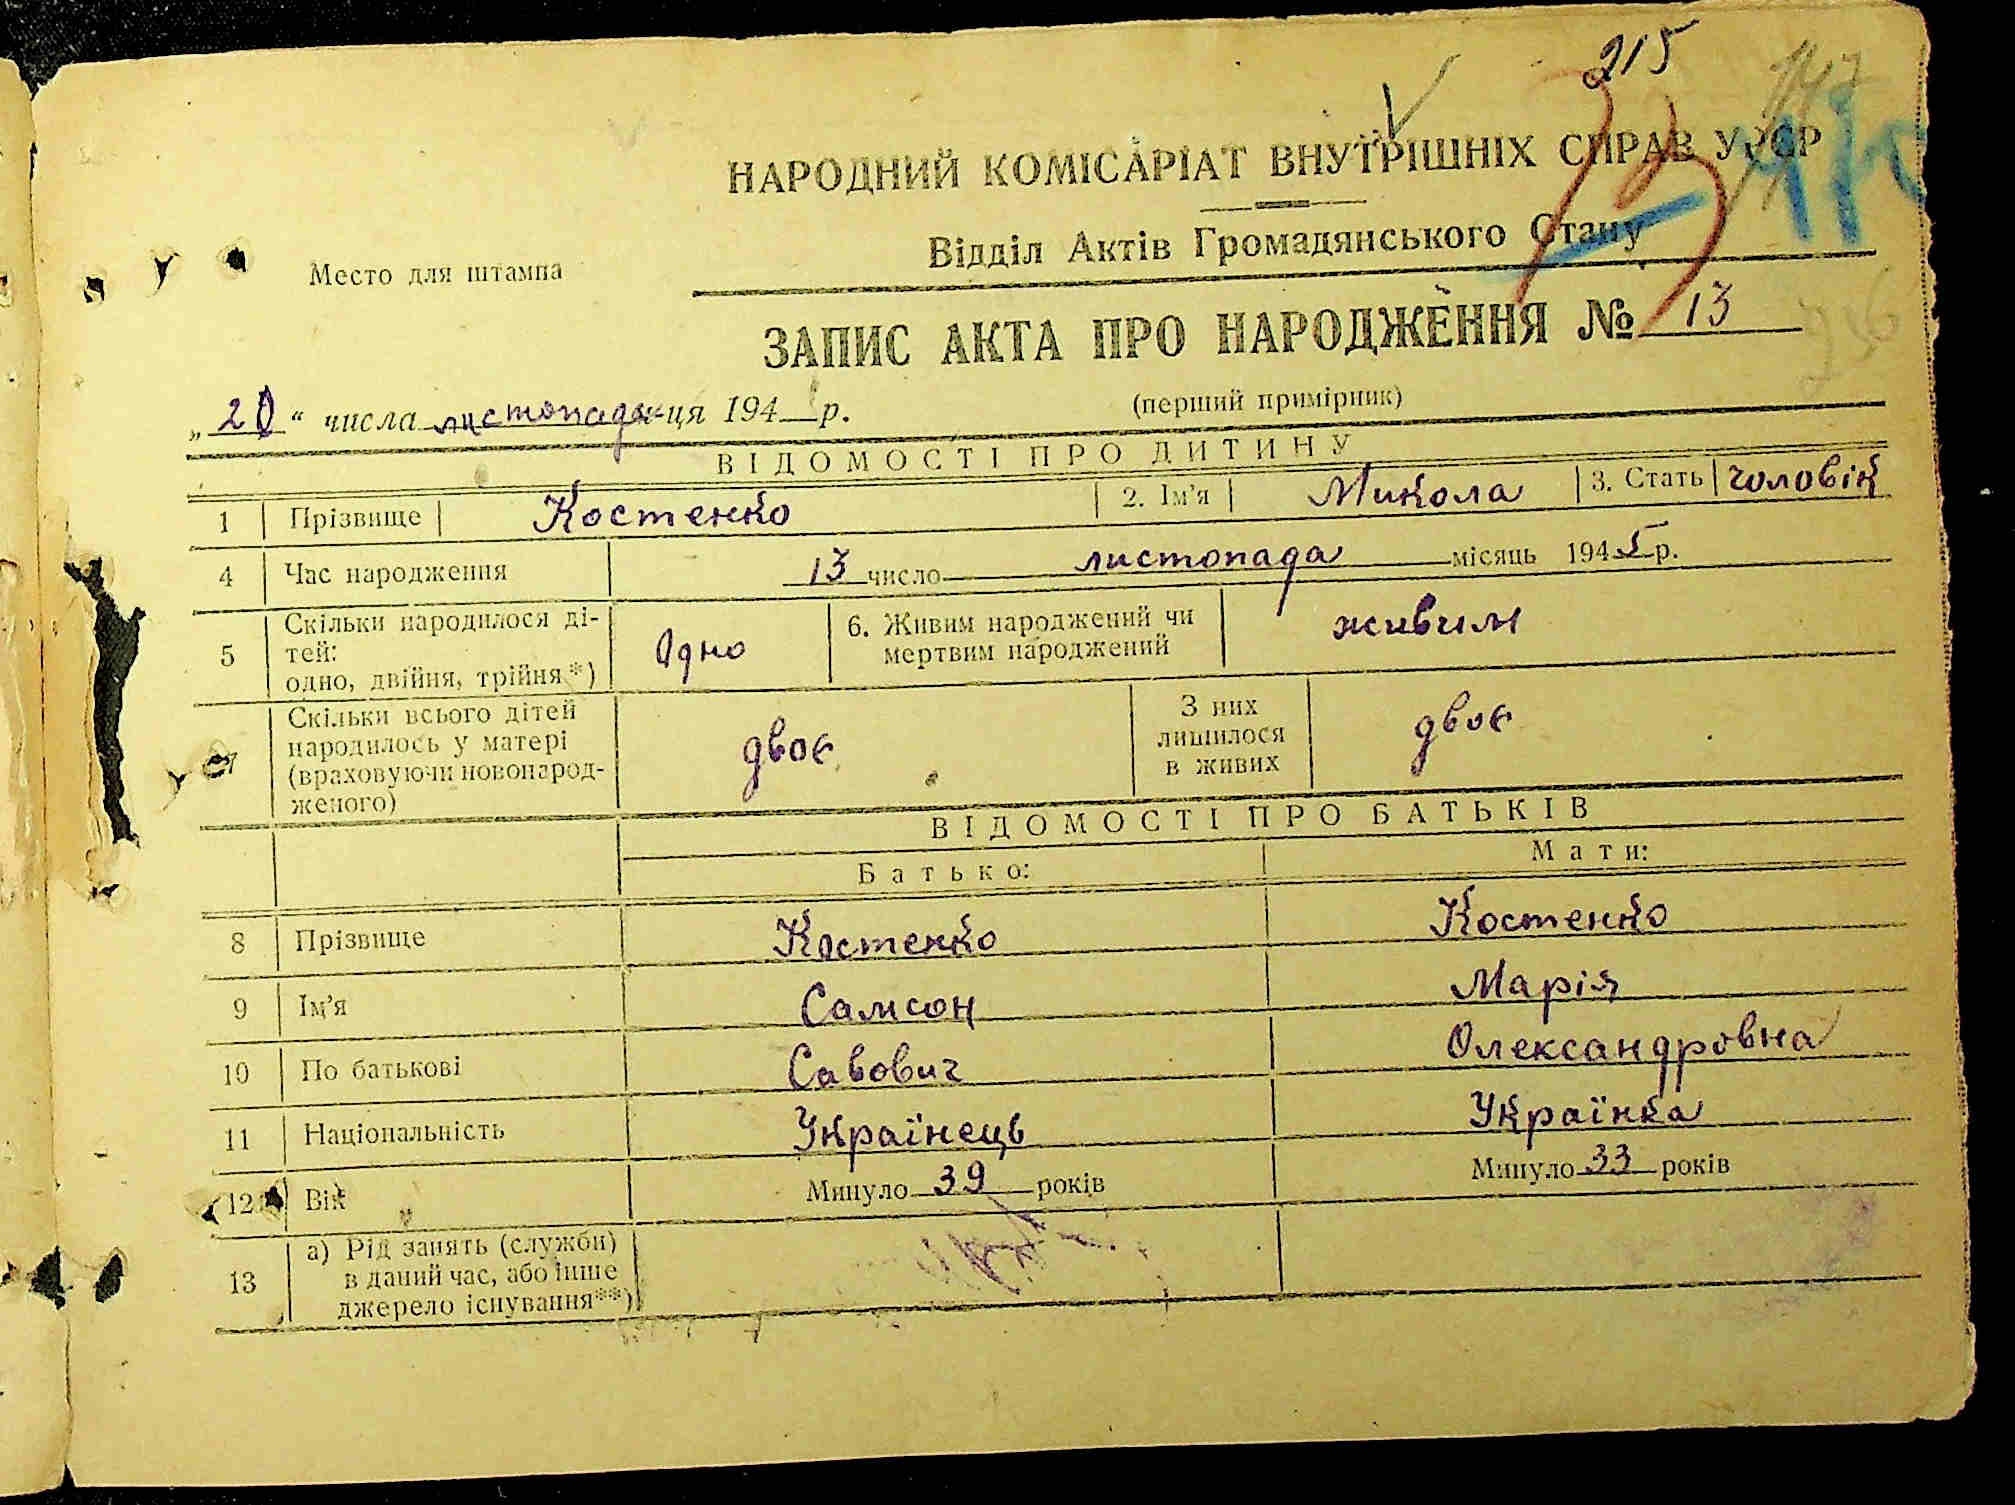 215
НАРОДНИЙ КОМІСАРІАТ ВНУТРІШНІХ СПРАВ УРСР
Відділ Актів Громадянського Стану
Место для штампа
ЗАПИС АКТА ПРО НАРОДЖЕННЯ № 13
(перший примірник)
„20“ числа листопада-ця 194 р.
ВІДОМОСТІ ПРО ДИТИНУ
1 Прізвище Костенко 2. Ім'я Микола 3. Стать чоловік
4 Час народження 13 число листопада місяць 1945 р.
5 Скільки народилося ді-
тей:
одно, двійня, трійня*) Одно 6. Живим народжений чи
мертвим народжений живим
7 Скільки всього дітей
народилось у матері
(враховуючи новонарод-
женого) двоє З них
лишилося
в живих двоє
ВІДОМОСТІ ПРО БАТЬКІВ
Батько: Мати:
8 Прізвище Костенко Костенко
9 Ім'я Самсон Марія
10 По батькові Савович Олександровна
11 Національність Українець Українка
12 Вік Минуло 39 років Минуло 33 років
13 а) Рід занять (служби)
в даний час, або інше
джерело існування**)